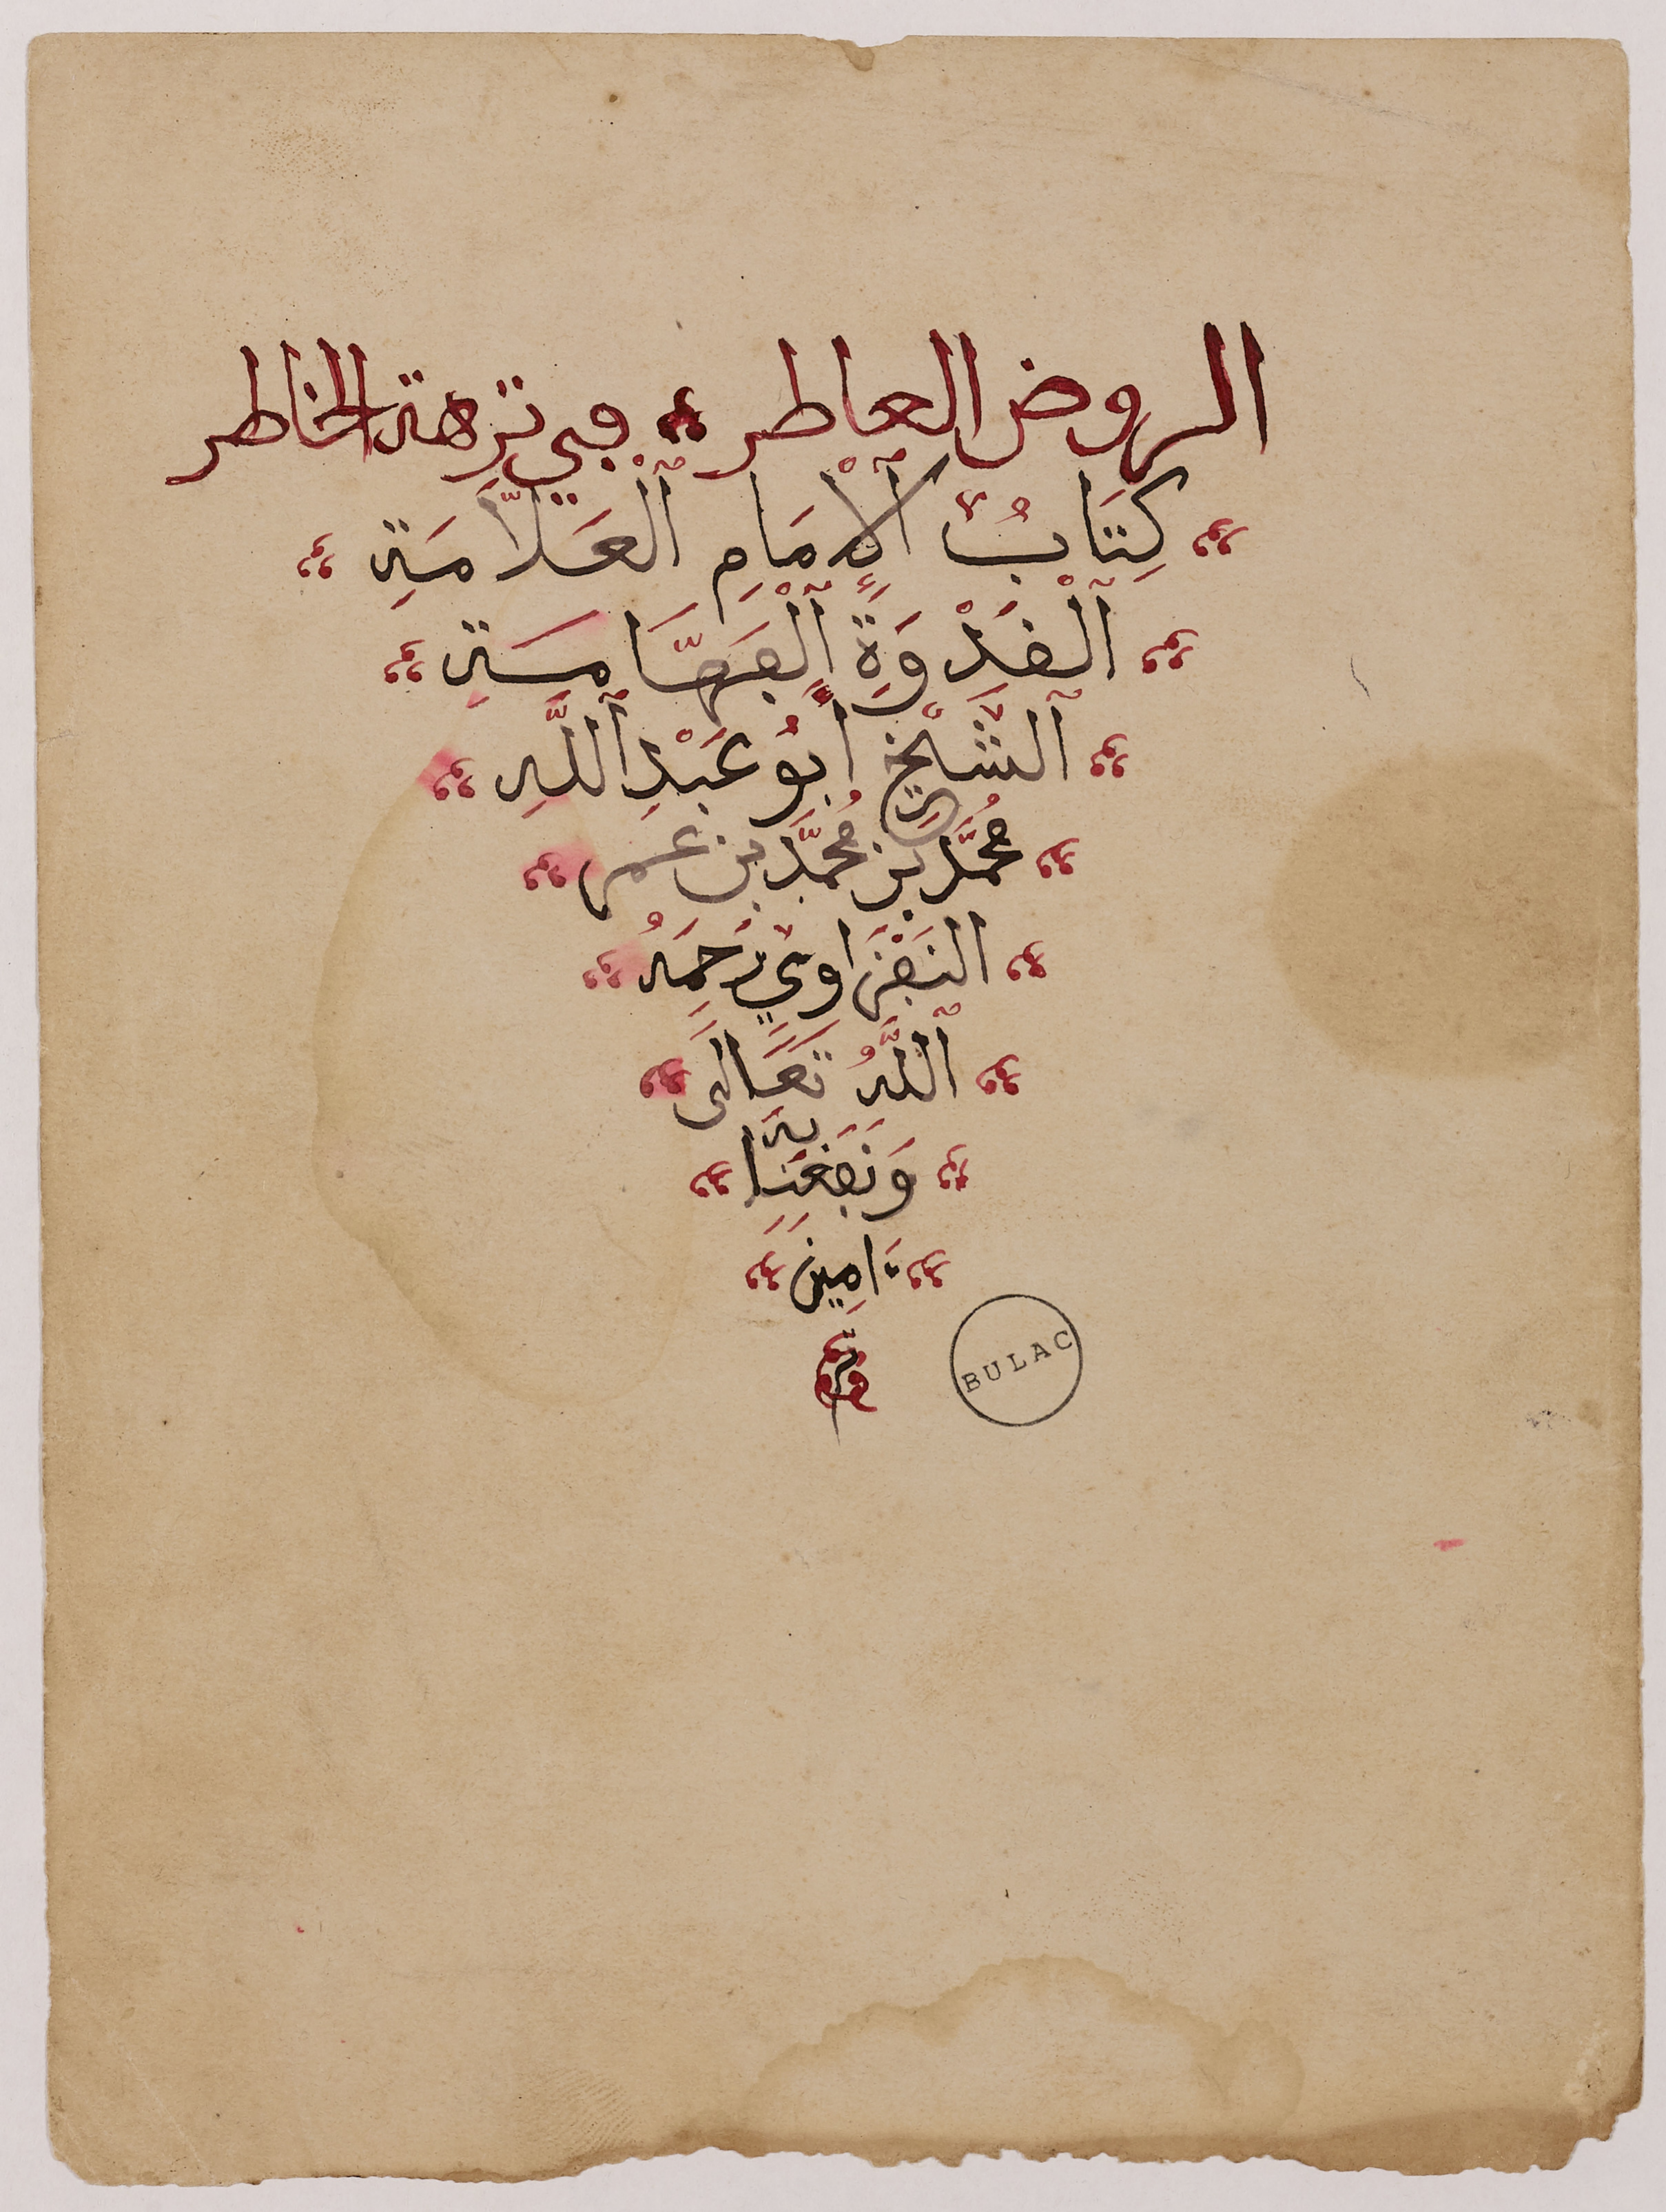 الروض العاطر في نزهة الخاطر
كِتَابُ ٱلْإِمَامِ ٱلْعَلَّامَةِ
ٱلْقَدْوَةِ ٱلْفَهَّامَةِ
ٱلشَّيْخِ أَبُو عَبْدِ ٱللَّهِ
مُحَمَّد بَن مُحَمَّد بن عمر
النَفْزَاوِيِّ رَحِمَهُ
ٱللَّهُ تَعَالَى
وَنَفَعَنَا بِهِ
ءَامِينَ
BULAC